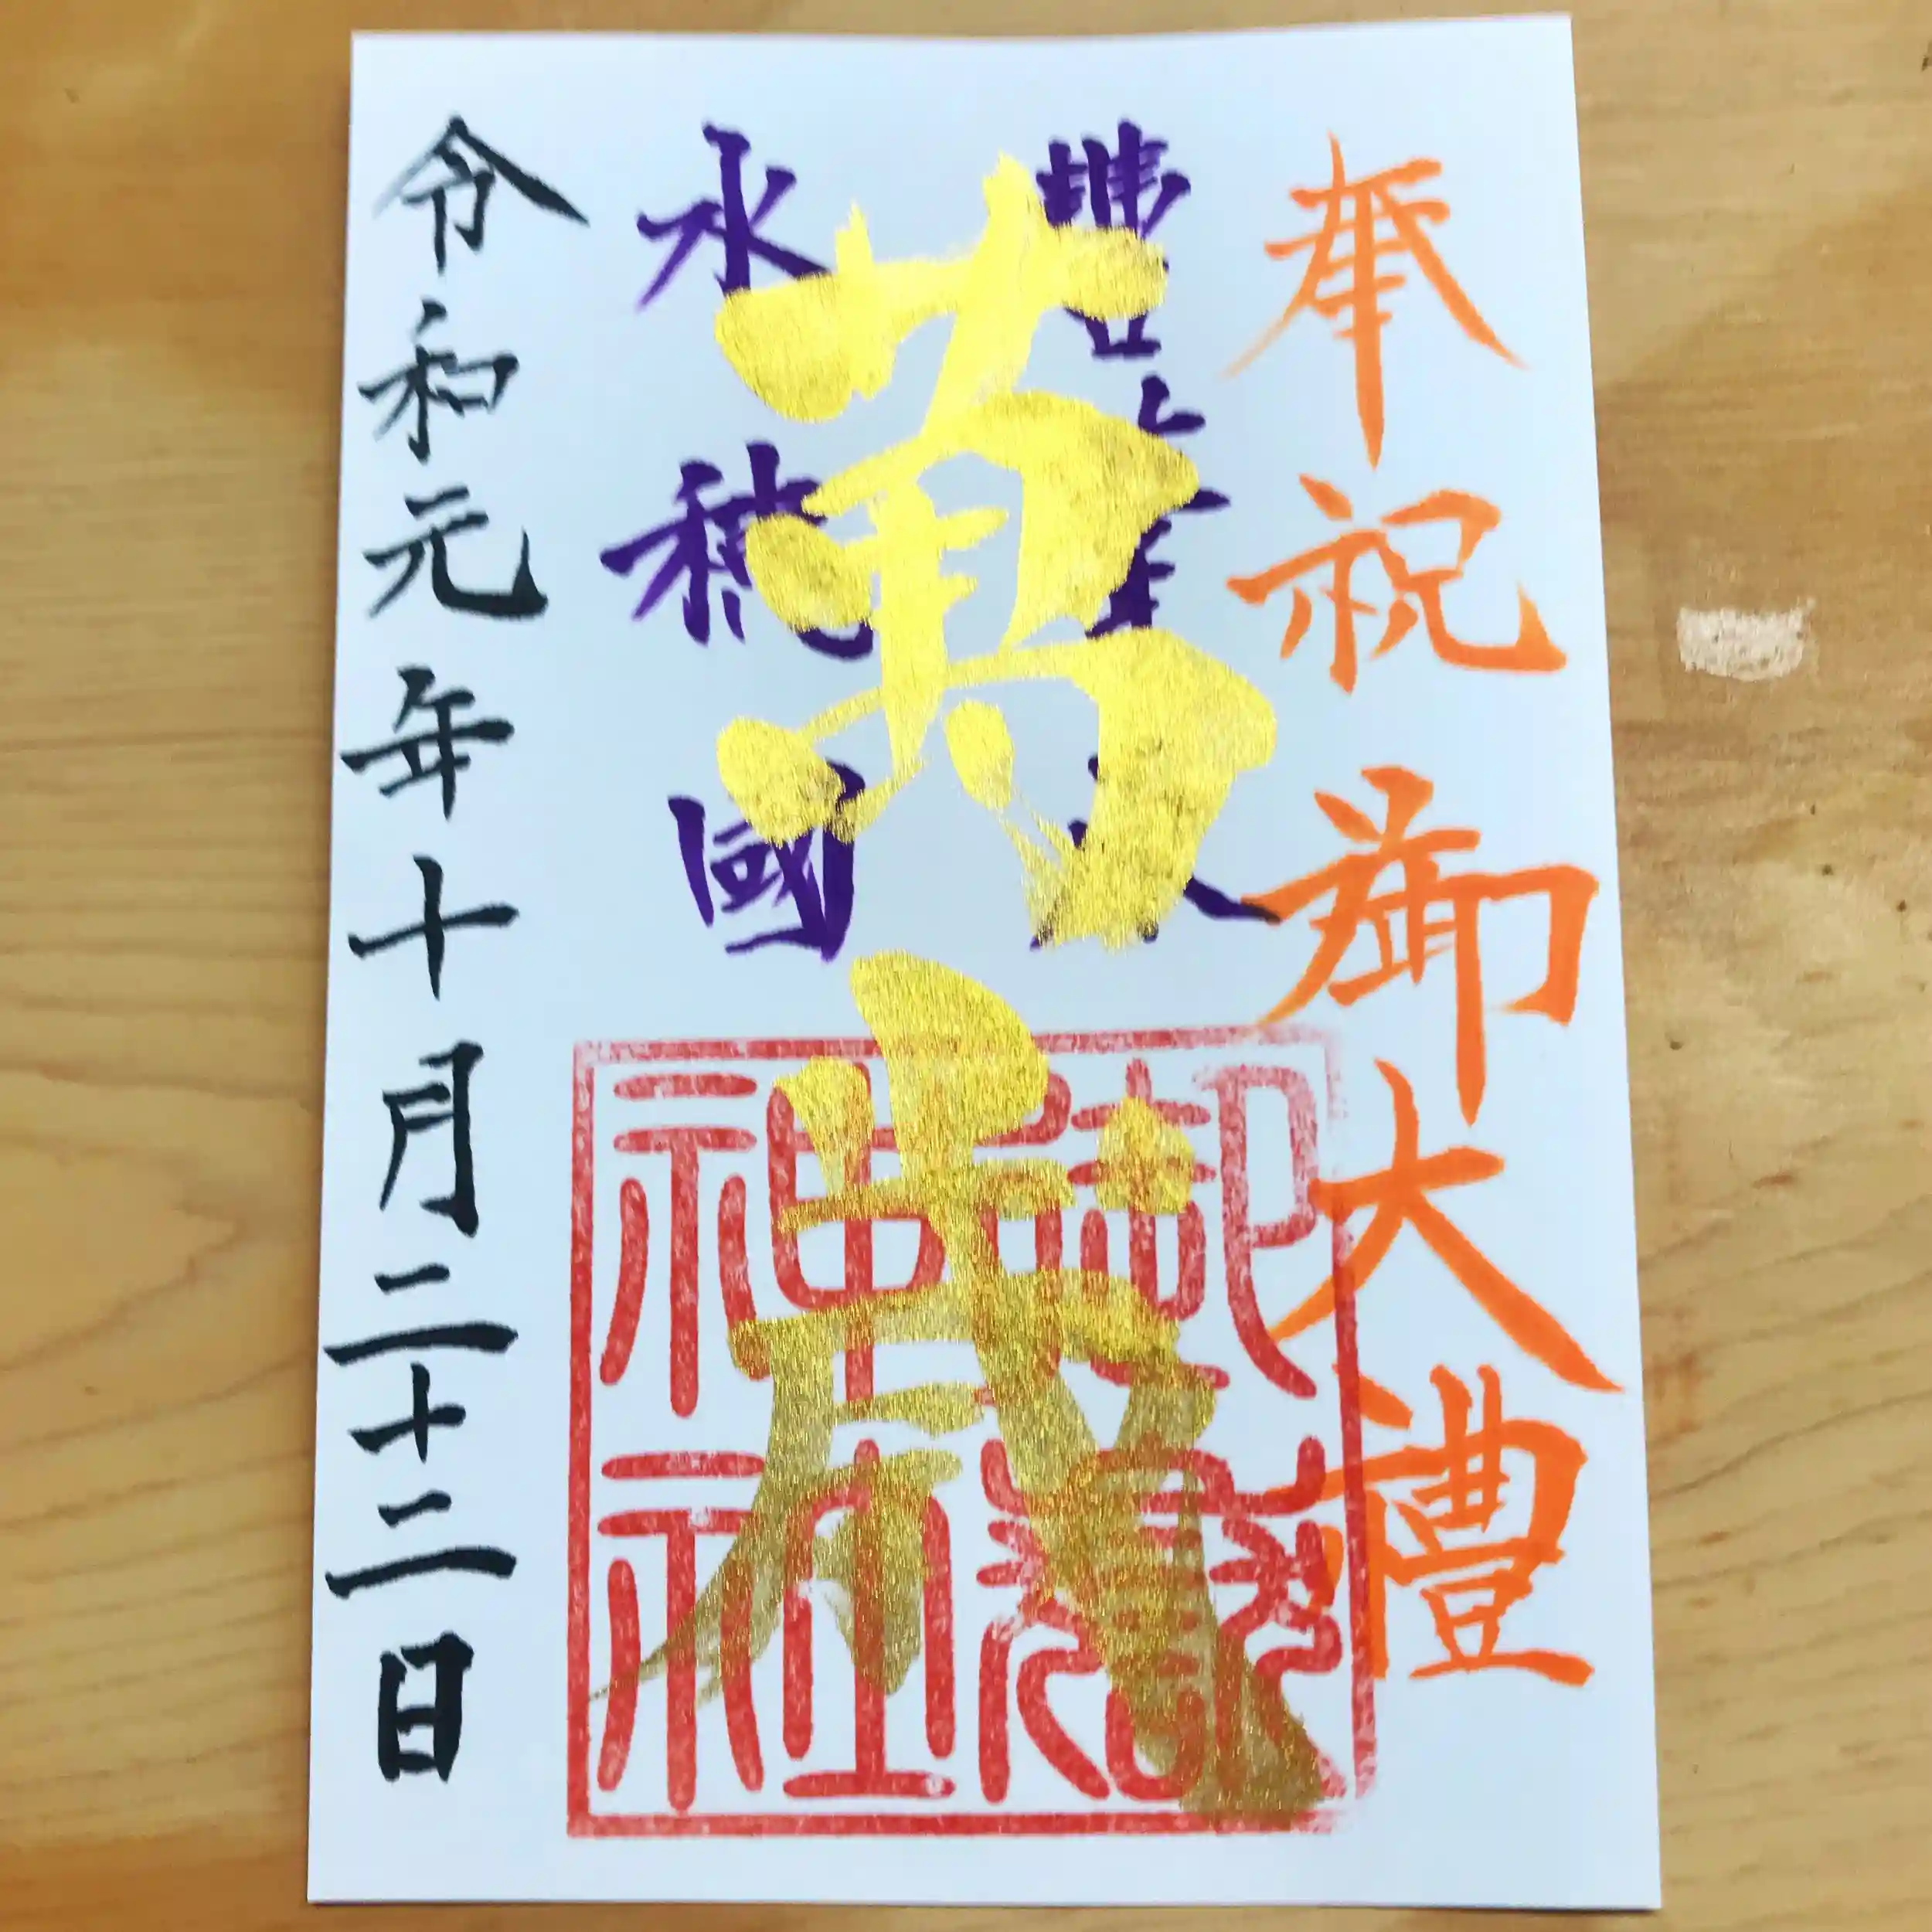 奉祝御大禮
豐
水穂國
萬歳
御
神社
令和元年十月二十二日